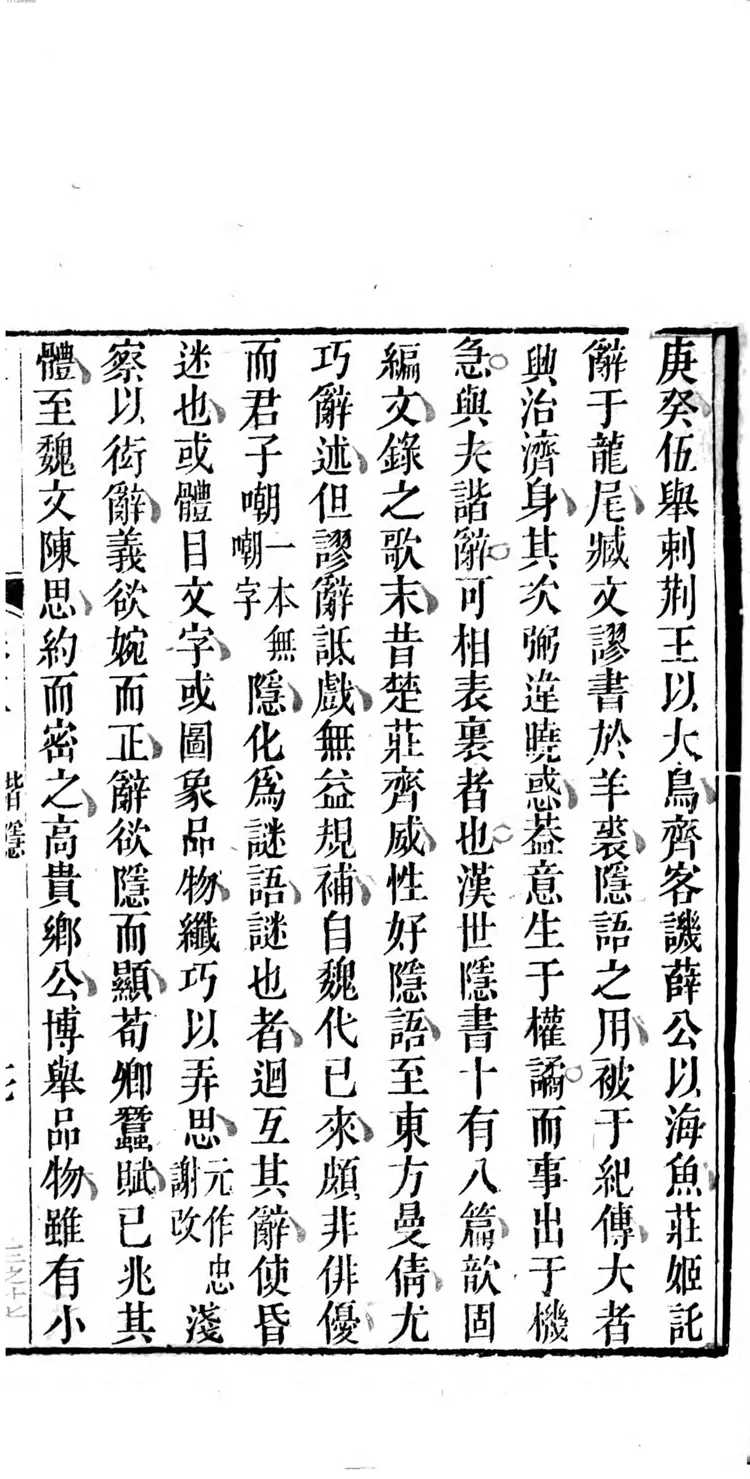 庚癸伍舉刺荆王以大鳥齊客譏薛公以海魚莊姬託
辭于龍尾臧文謬書於羊裘隱語之用被于紀傳大者
興治濟身其次弼違曉惑葢意生于權譎而事出于機
急與夫諧辭可相表裏者也漢世隱書十有八篇歆固
編文錄之歌末昔楚莊齊威性好隱語至東方曼倩尤
巧辭述但謬辭詆戲無益規補自魏代已來頗非俳優
而君子嘲一本無嘲字隱化爲謎語謎也者迴互其辭使昏
迷也或體目文字或圖象品物纖巧以弄思元作忠謝改淺
察以衒辭義欲婉而正辭欲隱而顯荀卿蠶賦已兆其
體至魏文陳思約而密之高貴鄉公博舉品物雖有小
諧隱